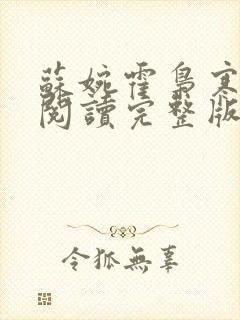 蘇婉霍梟寒
閱讀完整版
令狐無辜